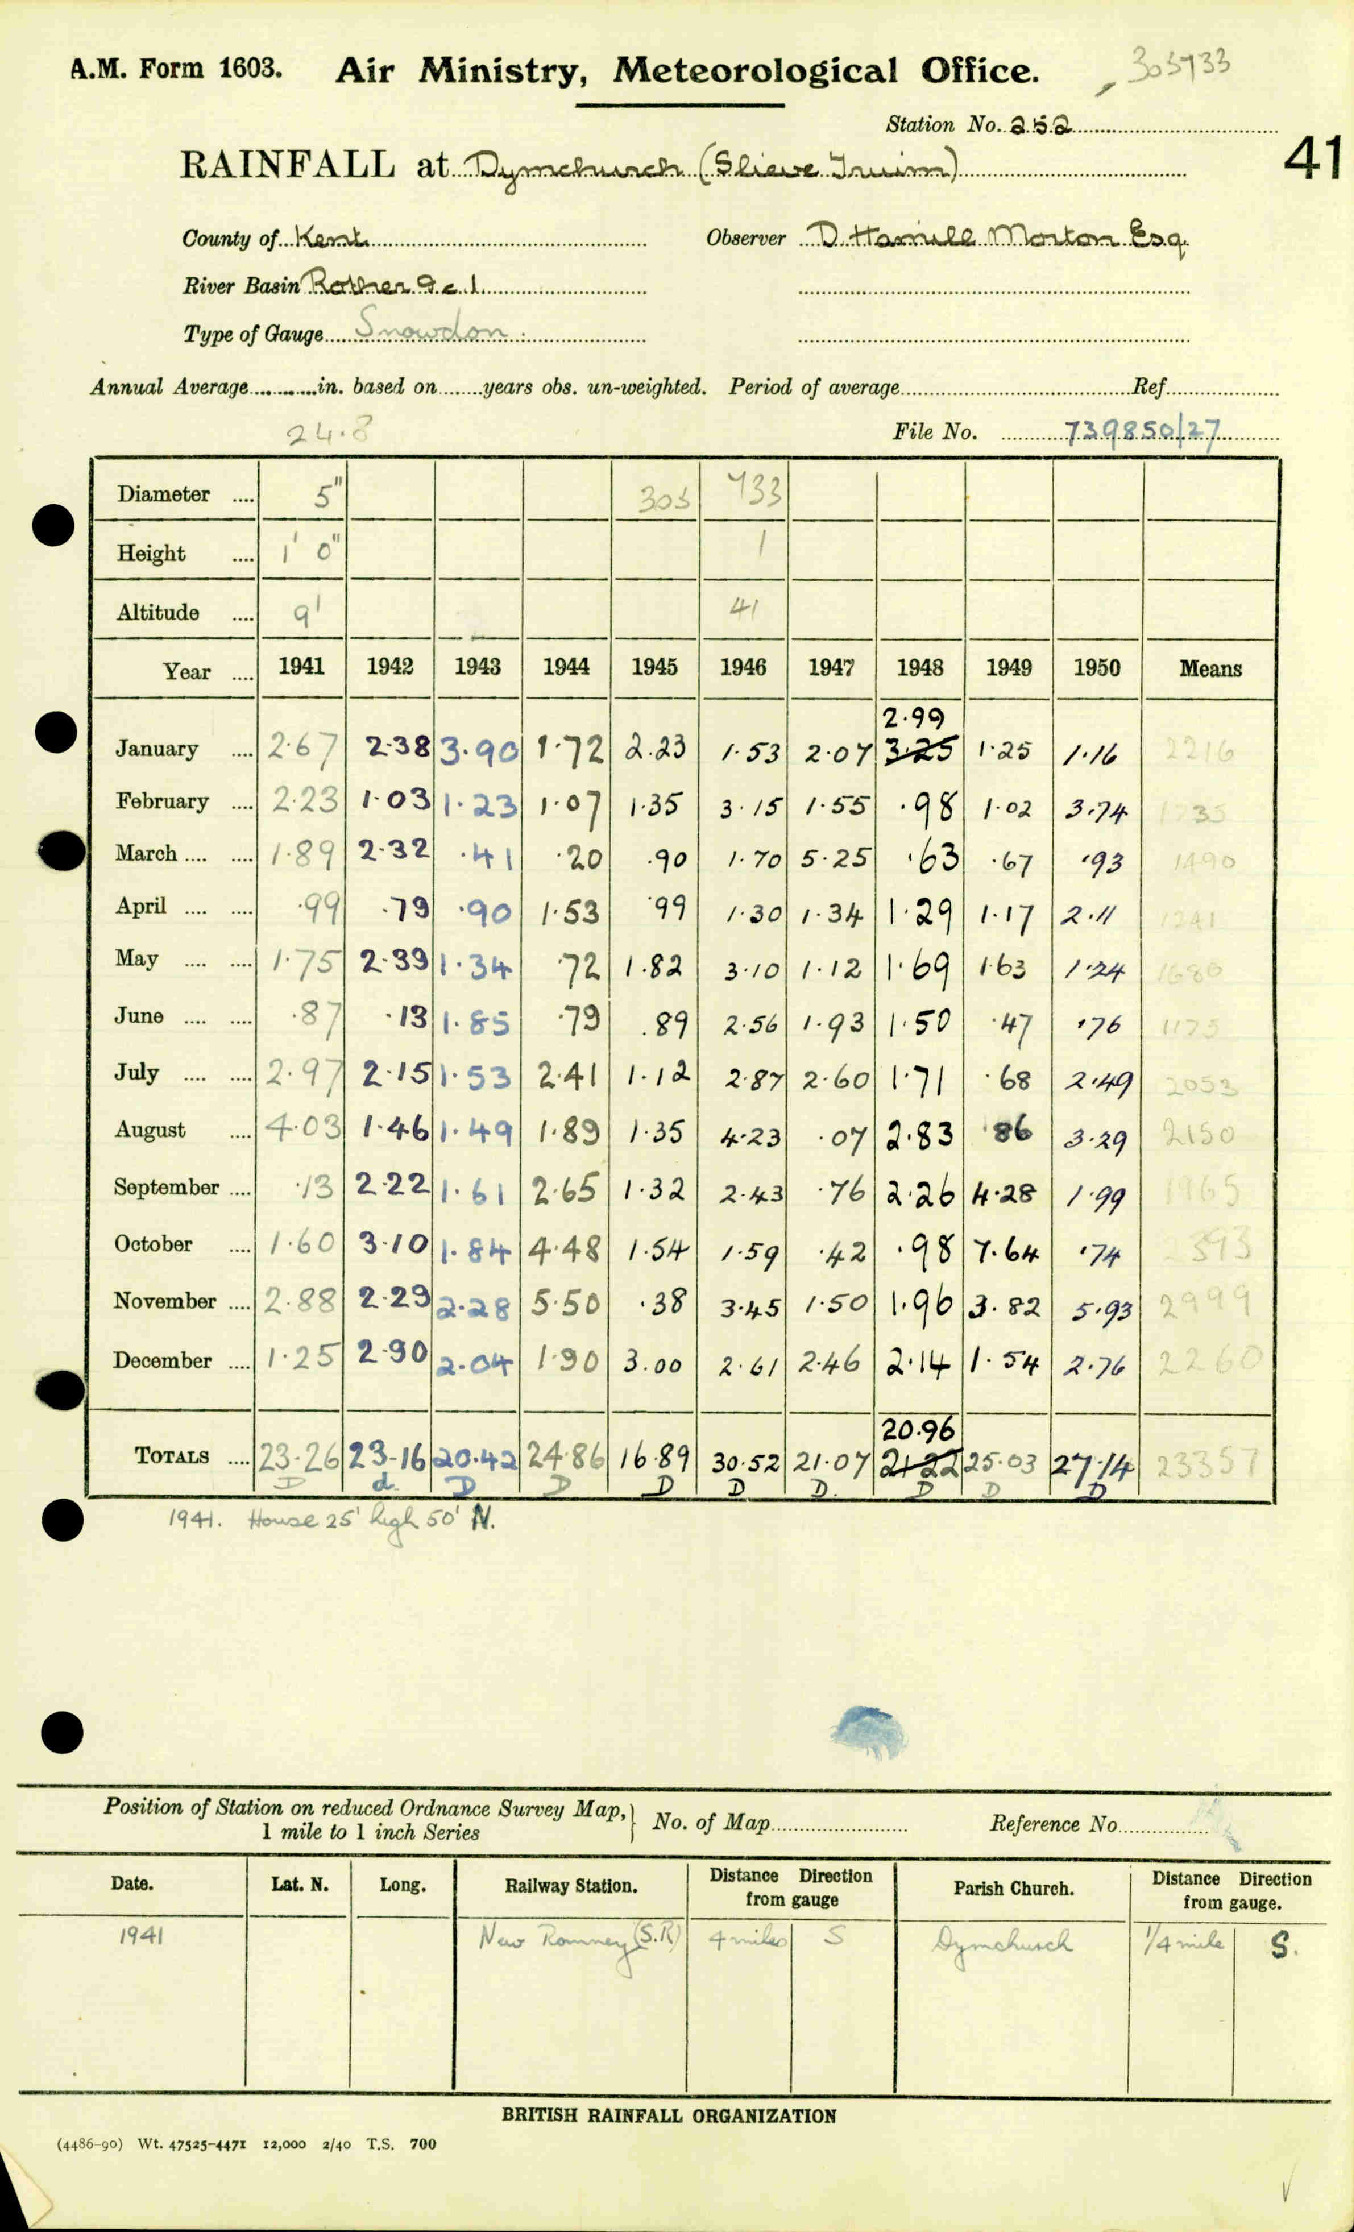 A.M. Form 1603. Air Ministry, Meteorological Office. 303733
Station No. 252
41
RAINFALL at Dymchurch (Slieve Truim)
County of Kent Observer D Hamill Morton Esq.
River Basin Rother &c 1
Type of Gauge Snowdon
Annual Average in. based on years obs. un-weighted. Period of average Ref
24.8 File No. 739850/27
Diameter 5" 303 733
Height 1' 0" 1
Altitude 9' 41
Year 1941 1942 1943 1944 1945 1946 1947 1948 1949 1950 Means
2.99
January 2.67 2.38 3.90 1.72 2.23 1.53 2.07 3.25 1.25 1.16 2216
February 2.23 1.03 1.23 1.07 1.35 3.15 1.55 .98 1.02 3.74 1735
March 1.89 2.32 .41 .20 .90 1.70 5.25 .63 .67 .93 1490
April .99 .79 .90 1.53 .99 1.30 1.34 1.29 1.17 2.11 1241
May 1.75 2.39 1.34 .72 1.82 3.10 1.12 1.69 1.63 1.24 1680
June .87 .13 1.85 .79 .89 2.56 1.93 1.50 .47 .76 1175
July 2.97 2.15 1.53 2.41 1.12 2.87 2.60 1.71 .68 2.49 2053
August 4.03 1.46 1.49 1.89 1.35 4.23 .07 2.83 .86 3.29 2150
September .13 2.22 1.61 2.65 1.32 2.43 .76 2.26 4.28 1.99 1965
October 1.60 3.10 1.84 4.48 1.54 1.59 .42 .98 7.64 .74 2393
November 2.88 2.29 2.28 5.50 .38 3.45 1.50 1.96 3.82 5.93 2999
December 1.25 2.90 2.04 1.90 3.00 2.61 2.46 2.14 1.54 2.76 2260
20.96
TOTALS 23.26 23.16 20.42 24.86 16.89 30.52 21.07 21.22 25.03 27.14 23357
D d. D D D D D. D D D
1941. House 25' high 50' N.
Position of Station on reduced Ordnance Survey Map, No. of Map Reference No.
1 mile to 1 inch Series
Date. Lat. N. Long. Railway Station. Distance Direction from gauge Parish Church. Distance Direction from gauge.
1941 New Romney (S.R) 4 miles S Dymchurch 1/4 mile S.
BRITISH RAINFALL ORGANIZATION
(4486-90) Wt. 47525-4471 12,000 2/40 T.S. 700